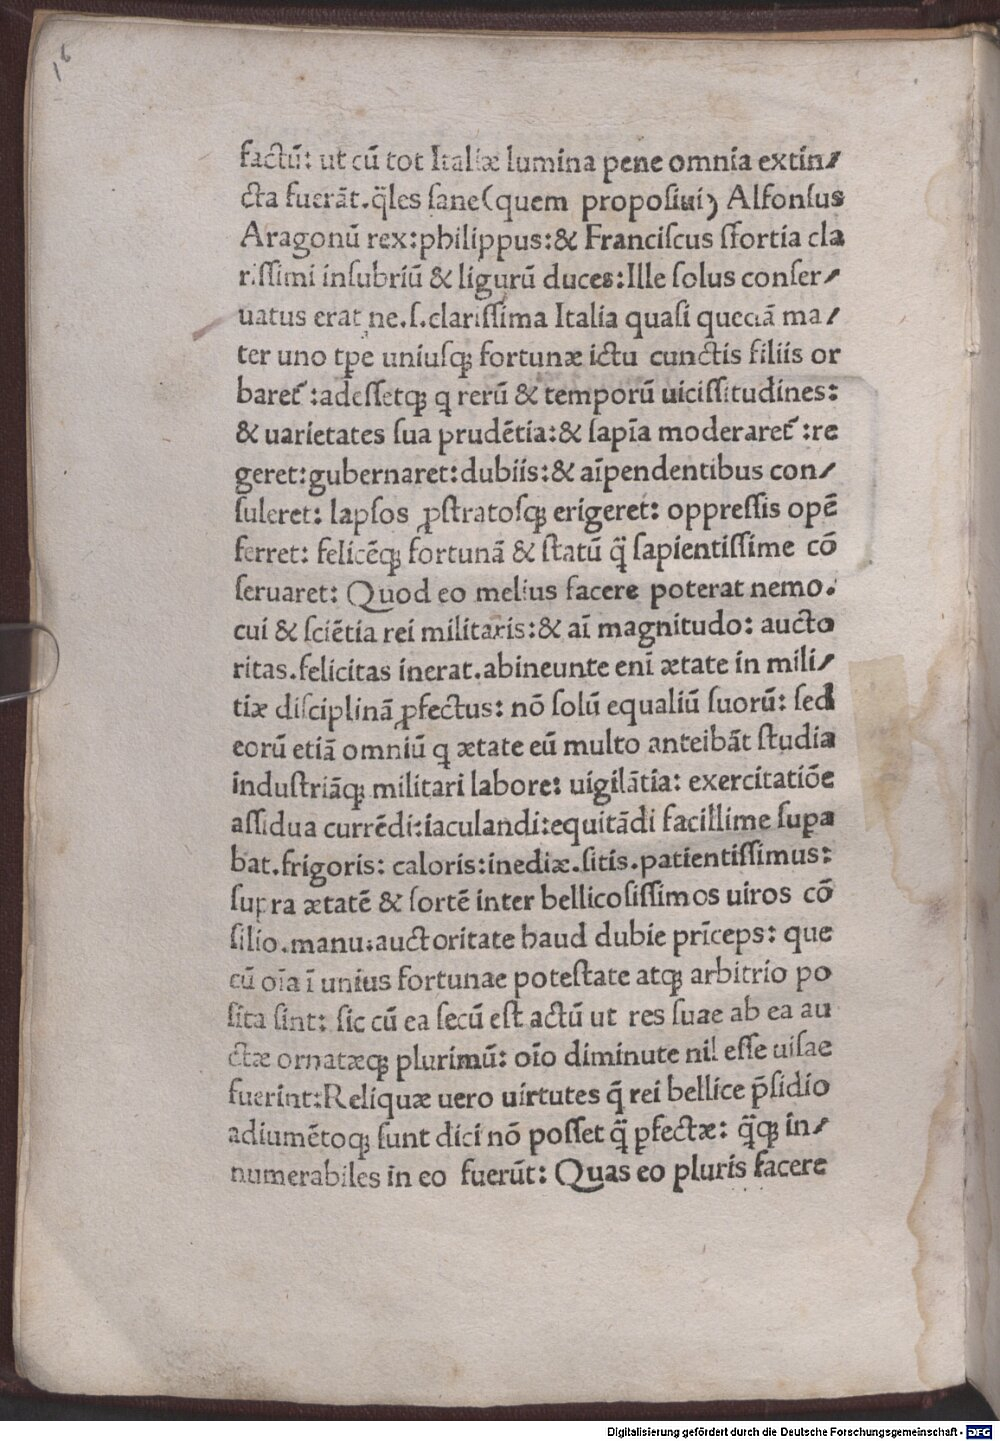 16
factū: ut cū tot Italiæ lumina pene omnia extin/
cta fuerāt. q̈les ſane (quem propoſiui) Alfonſus
Aragonū rex: philippus: & Franciſcus sfortia cla
riſſimi inſubriū & ligurū duces: Ille ſolus conſer/
uatus erat ne .ſ. clariſſima Italia quaſi quedā ma/
ter uno tꝑe uniuſqꝫ fortunæ ictu cunctis filiis or
baret᷑: adeſſetqꝫ q rerū & temporū uiciſſitudines:
& uarietates ſua prudētia: & ſapīa moderaret᷑: re
geret: gubernaret: dubiis: & aīpendentibus con/
ſuleret: lapſos ꝓſtratoſqꝫ erigeret: oppreſſis opē
ferret: felicēqꝫ fortunā & ſtatū q̈ ſapientiſſime cō
ſeruaret: Quod eo melius facere poterat nemo.
cui & ſciētia rei militaris: & aī magnitudo: aucto
ritas. felicitas inerat. abineunte enī ætate in mili/
tiæ diſciplinā ꝓfectus: nō ſolū equaliū ſuorū: ſed
eorū etiā omniū q ætate eū multo anteibāt ſtudia
induſtriāqꝫ militari labore: uigilātia: exercitatiōe
aſſidua currēdi: iaculandi: equitādi facillime ſuꝑa
bat. frigoris: caloris: inediæ. ſitis. patientiſſimus:
ſupra ætatē & ſortē inter bellicoſiſſimos uiros cō
ſilio. manu. auctoritate haud dubie prīceps: que
cū oīa ī unius fortunae poteſtate atqꝫ arbitrio po
ſita ſint: ſic cū ea ſecū eſt actū ut res ſuae ab ea au
ctæ ornatæqꝫ plurimū: oīo diminute nil eſſe uiſae
fuerint: Reliquæ uero uirtutes q̄ rei bellice p̄ſidio
adiumētoqꝫ ſunt dici nō poſſet q̈ ꝑfectæ: q̈qꝫ in/
numerabiles in eo fuerūt: Quas eo pluris facere
Digitalisierung gefördert durch die Deutsche Forschungsgemeinschaft - DFG